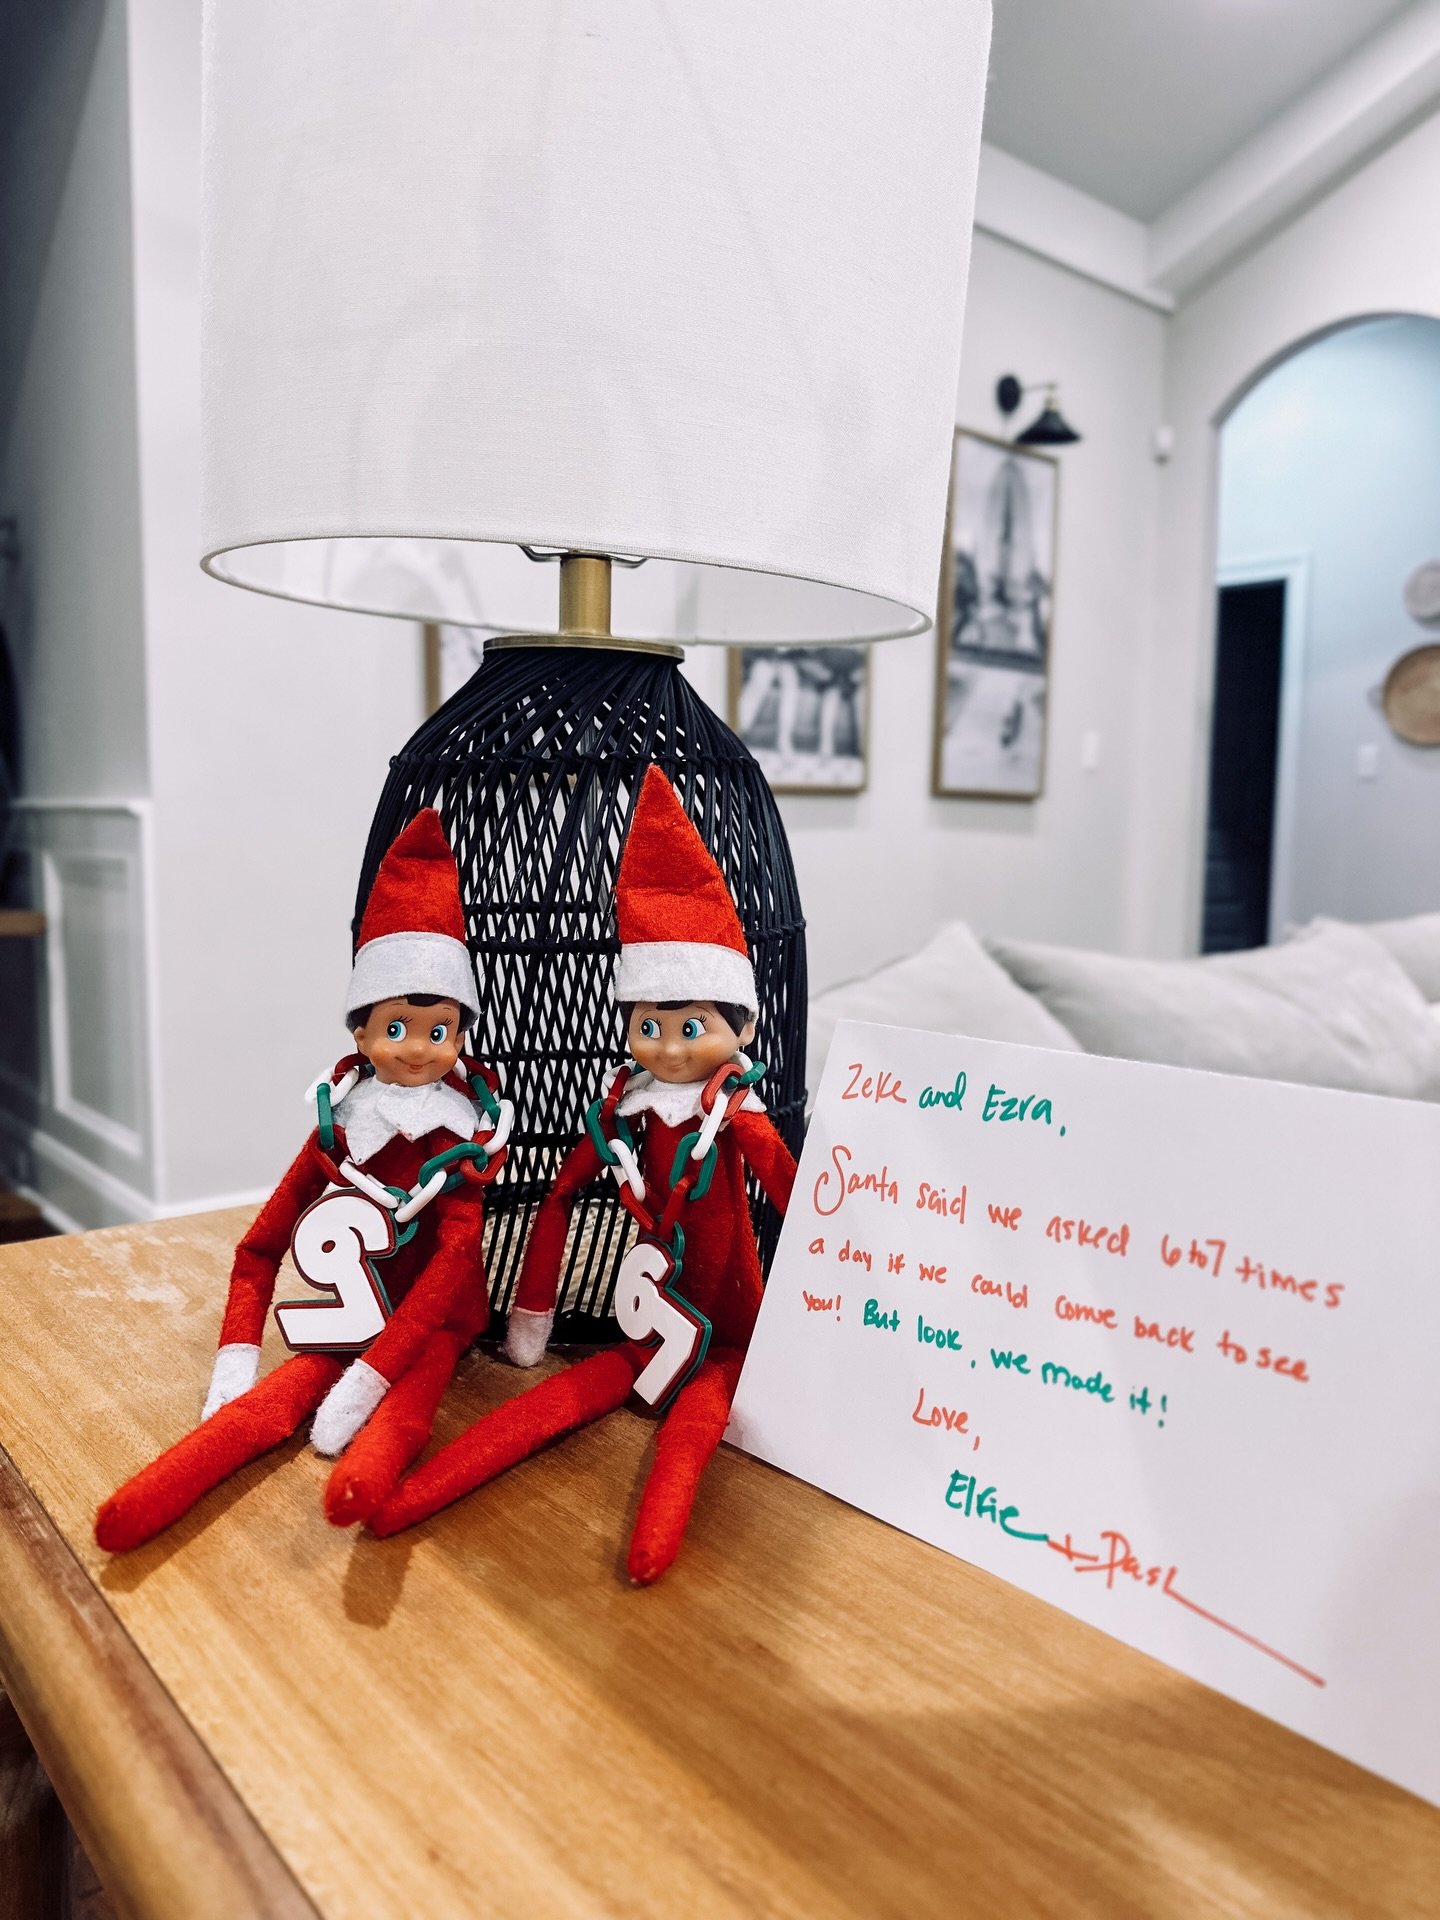 67
67
Zeke and Ezra,
Santa said we asked 6 to 7 times
a day if we could come back to see
you! But look, we made it!
Love,
Elfie + Dash